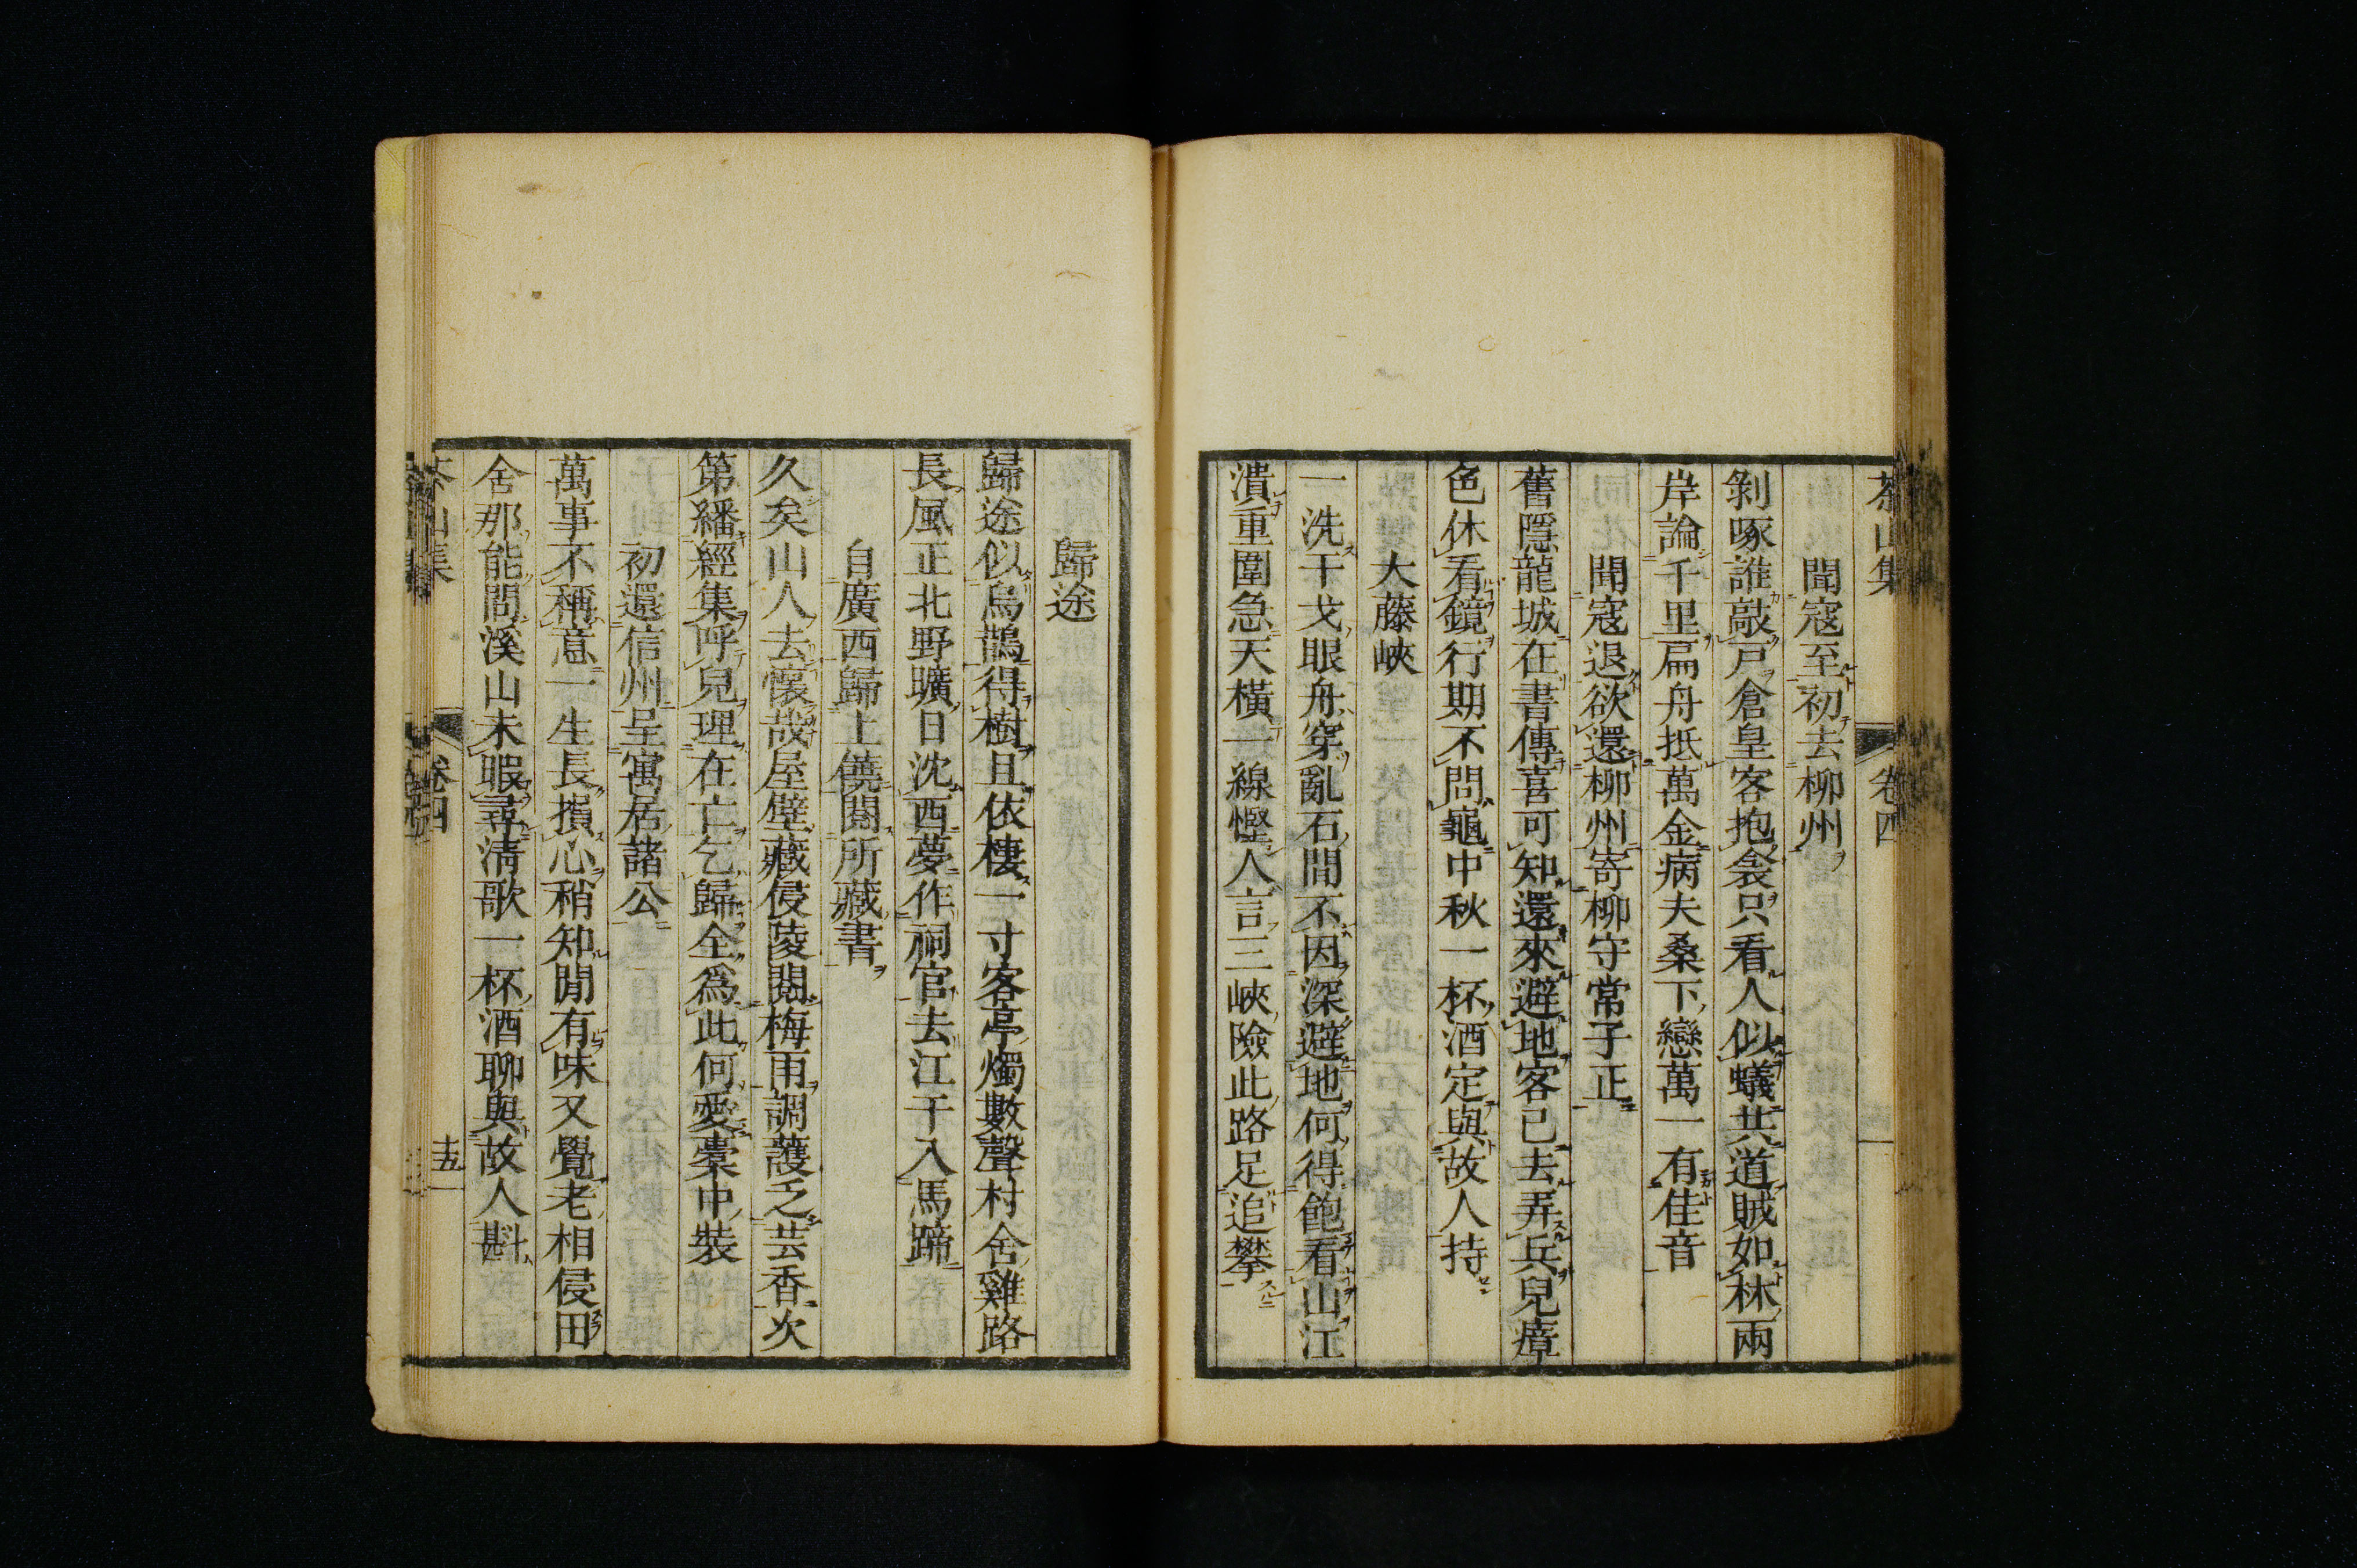 茶山集 卷四
聞寇至初去柳州
剝啄誰敲戸倉皇客抱衾只看人似蟻共道賊如林兩
岸論千里扁舟抵萬金病夫桑下戀萬一有佳音
聞寇退欲還柳州寄柳守常子正
舊隱龍城在書傳喜可知還來避地客已去弄兵兒瘴
色休看鏡行期不問龜中秋一杯酒定與故人持
大藤峽
一洗干戈眼舟穿亂石間不因深避地何得飽看山江
潰重圍急天橫一線慳人言三峽險此路足追攀
歸途
歸途似烏鵲得樹且依棲一寸客亭燭數聲村舍雞路
長風正北野曠日沈西夢作祠官去江干入馬蹄
自廣西歸上饒閱所藏書
久矣山人去懷哉屋壁藏侵陵閱梅雨調護乏芸香次
第繙經集呼兒理在亡乞歸全爲此何愛橐中裝
初還信州呈寓居諸公
萬事不稱意一生長損心稍知閒有味又覺老相侵田
舍那能問溪山未暇尋清歌一杯酒聊與故人斟
茶山集 卷四 十五